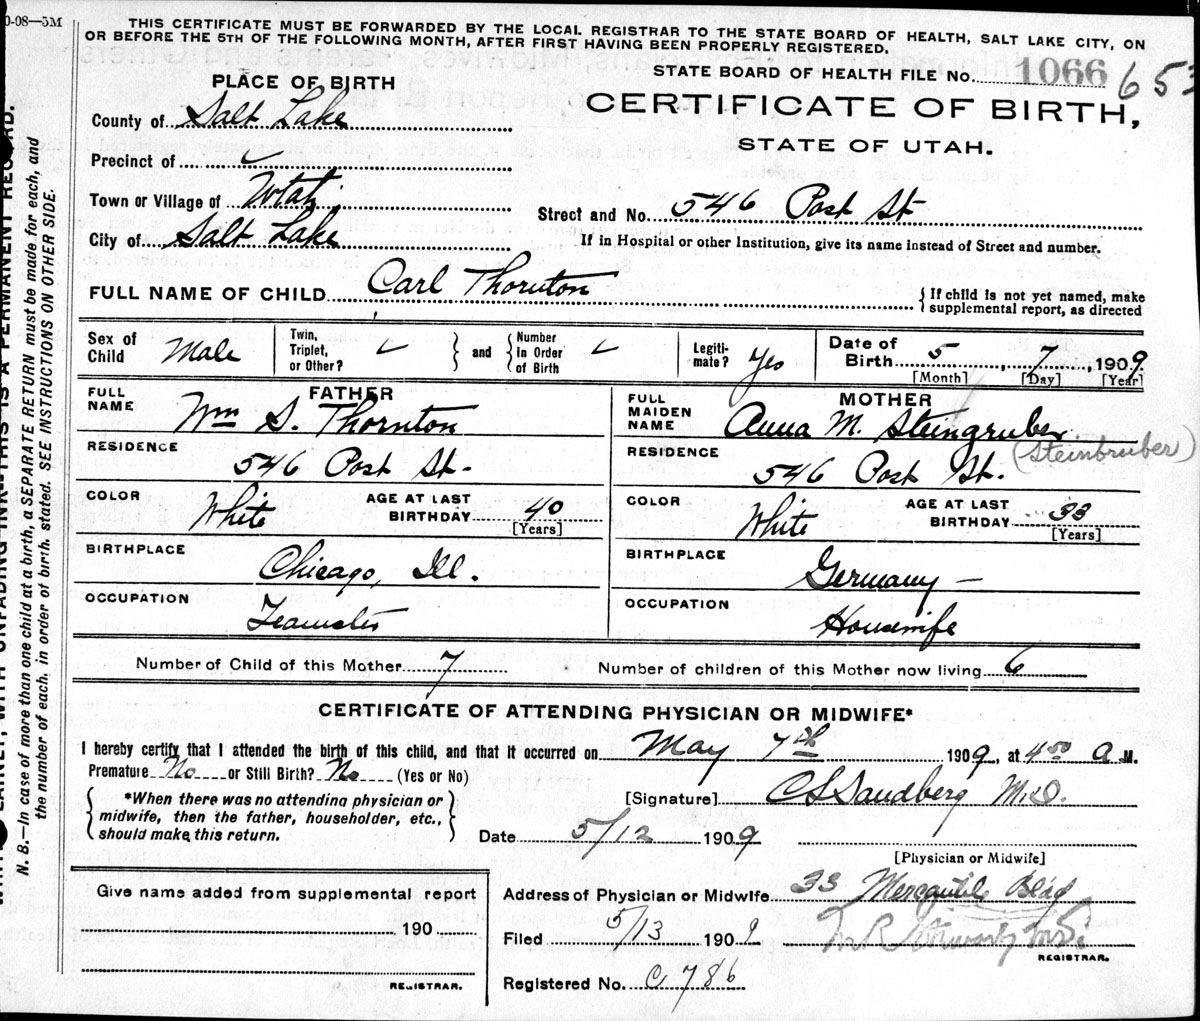 0-08—5M
THIS CERTIFICATE MUST BE FORWARDED BY THE LOCAL REGISTRAR TO THE STATE BOARD OF HEALTH, SALT LAKE CITY, ON
OR BEFORE THE 5TH OF THE FOLLOWING MONTH, AFTER FIRST HAVING BEEN PROPERLY REGISTERED.
PLACE OF BIRTH
STATE BOARD OF HEALTH FILE No. 1066 653
CERTIFICATE OF BIRTH,
STATE OF UTAH.
County of Salt Lake
Precinct of ✓
Town or Village of Utah
Street and No. 546 Post St
City of Salt Lake
If in Hospital or other Institution, give its name instead of Street and number.
FULL NAME OF CHILD Carl Thornton
{ If child is not yet named, make supplemental report, as directed
Sex of Child Male
Twin, Triplet, or Other? ✓ } and { Number In Order of Birth ✓
Legitimate? Yes
Date of Birth 5, 7, 1909
[Month] [Day] [Year]
FATHER
FULL NAME Wm S. Thornton
RESIDENCE 546 Post St.
COLOR White
AGE AT LAST BIRTHDAY 40
[Years]
BIRTHPLACE Chicago, Ill.
OCCUPATION Teamster
MOTHER
FULL MAIDEN NAME Anna M. Steingruber
(Steinbruber)
RESIDENCE 546 Post St.
COLOR White
AGE AT LAST BIRTHDAY 33
[Years]
BIRTHPLACE Germany —
OCCUPATION Housewife
Number of Child of this Mother 7 Number of children of this Mother now living 6
CERTIFICATE OF ATTENDING PHYSICIAN OR MIDWIFE*
I hereby certify that I attended the birth of this child, and that it occurred on May 7th 1909, at 4:50 a M.
Premature No or Still Birth? No (Yes or No)
{ *When there was no attending physician or
midwife, then the father, householder, etc.,
should make this return. }
[Signature] C L Sandberg M.D.
Date 5/12 1909
[Physician or Midwife]
Give name added from supplemental report
190
REGISTRAR.
Address of Physician or Midwife 33 Mercantile Bldg
Filed 5/13 1909
REGISTRAR.
Registered No. C 786
N. B.—In case of more than one child at a birth, a SEPARATE RETURN must be made for each, and
the number of each, in order of birth, stated. SEE INSTRUCTIONS ON OTHER SIDE.